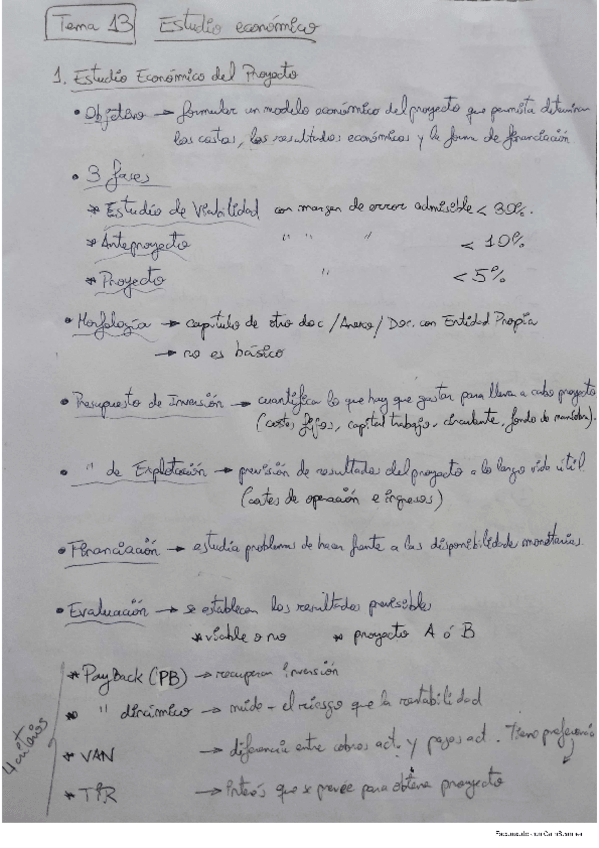 Tema 13 Estudio económico
1. Estudio Económico del Proyecto
• Objetivo → formular un modelo económico del proyecto que permita determinar
los costos, los resultados económicos y la forma de financiación
• 3 fases
* Estudio de Viabilidad con margen de error admisible < 30%.
* Anteproyecto " " " < 10%
* Proyecto " < 5%
• Morfología → capítulo de otro doc / Anexo / Doc. con Entidad Propia
→ no es básico
• Presupuesto de Inversión → cuantifica lo que hay que gastar para llevar a cabo proyecto
(costes fijos, capital trabajo, circulante, fondo de maniobra).
• " de Explotación → previsión de resultados del proyecto a lo largo vida útil
(costes de operación e ingresos)
• Financiación → estudia problema de hacer frente a las disponibilidades monetarias.
• Evaluación → se establecen los resultados previsibles
* viable o no * proyecto A ó B
4 criterios
* PayBack (PB) → recuperar inversión
* " dinámico → mide - el riesgo que la rentabilidad
* VAN → diferencia entre cobros act. y pagos act. Tiene preferencia
* TIR → interés que se prevee para obtener proyecto